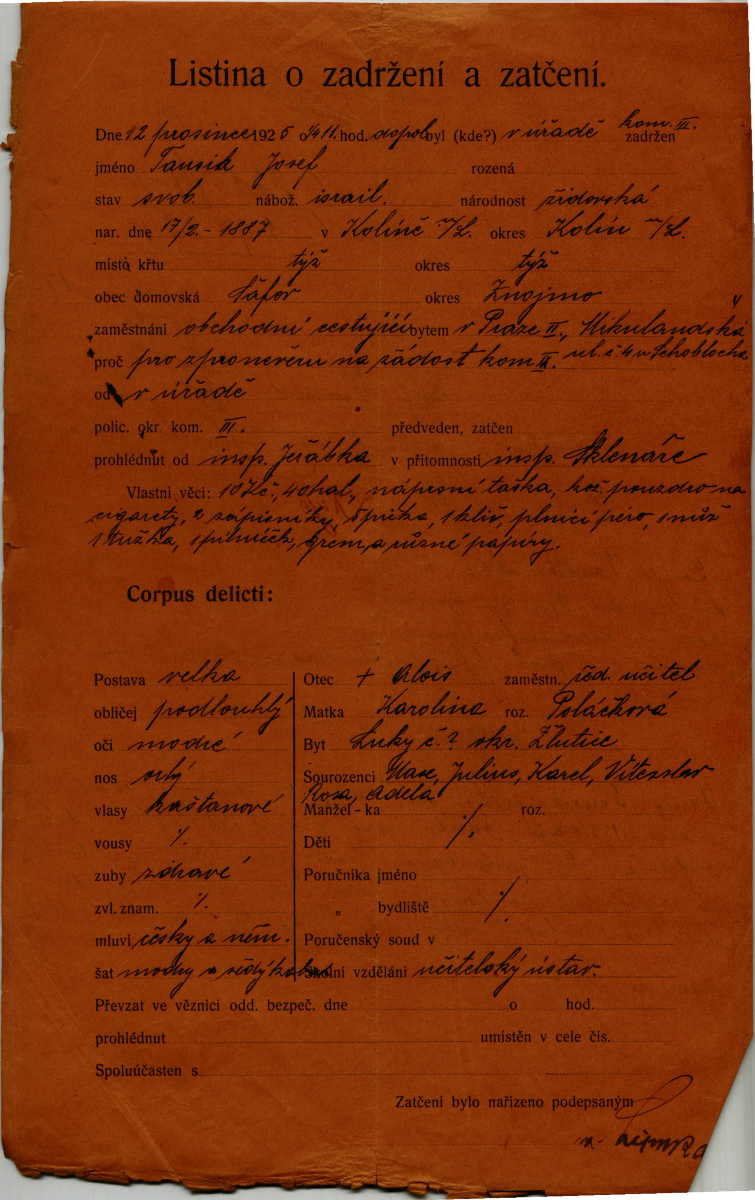 Listina o zadržení a zatčení.
kom. III.
Dne 12 prosince 1925 o ¼11 hod. dopol byl (kde?) v úřadě zadržen
jméno Taussik Josef rozená
stav svob. nábož. israil. národnost židovská
nar. dne 17/2.- 1887 v Kolíně n/L. okres Kolín n/L.
místo křtu týž okres týž
obec domovská Šafov okres Znojmo
zaměstnání obchodní cestující bytem v Praze II., Mikulandská
proč pro zpronevěru na žádost kom. II. ul. č. 4 u Schoblocha
od v úřadě
polic. okr. kom. III. předveden, zatčen
prohlédnut od insp. Jeřábka v přítomnosti insp. Sklenáře
Vlastní věci: 10 Kč, 40 hal, náprsní taška, kož. pouzdro na
cigarety, 2 zápisníky, špička, 1 klíč, plnicí péro, 1 nůž
1 tužka, 1 pilníček, krém, a různé papíry.
Corpus delicti:
Postava velká
obličej podlouhlý
oči modré
nos orlý
vlasy kaštanové
vousy ./.
zuby zdravé
zvl. znam. ./.
mluví česky a něm.
šat modrý a šedý kabát
Otec + Alois zaměstn. říd. učitel
Matka Karolina roz. Poláčková
Byt Luky č. ? okr. Žlutice
Sourozenci Max, Julius, Karel, Vítězslav
Rosa, Adela
Manžel-ka ./. roz.
Děti
Poručníka jméno
„ bydliště ./.
Poručenský soud v
Školní vzdělání učitelský ústav.
Převzat ve věznici odd. bezpeč. dne o hod.
prohlédnut umístěn v cele čís.
Spoluúčasten s
Zatčení bylo nařízeno podepsaným